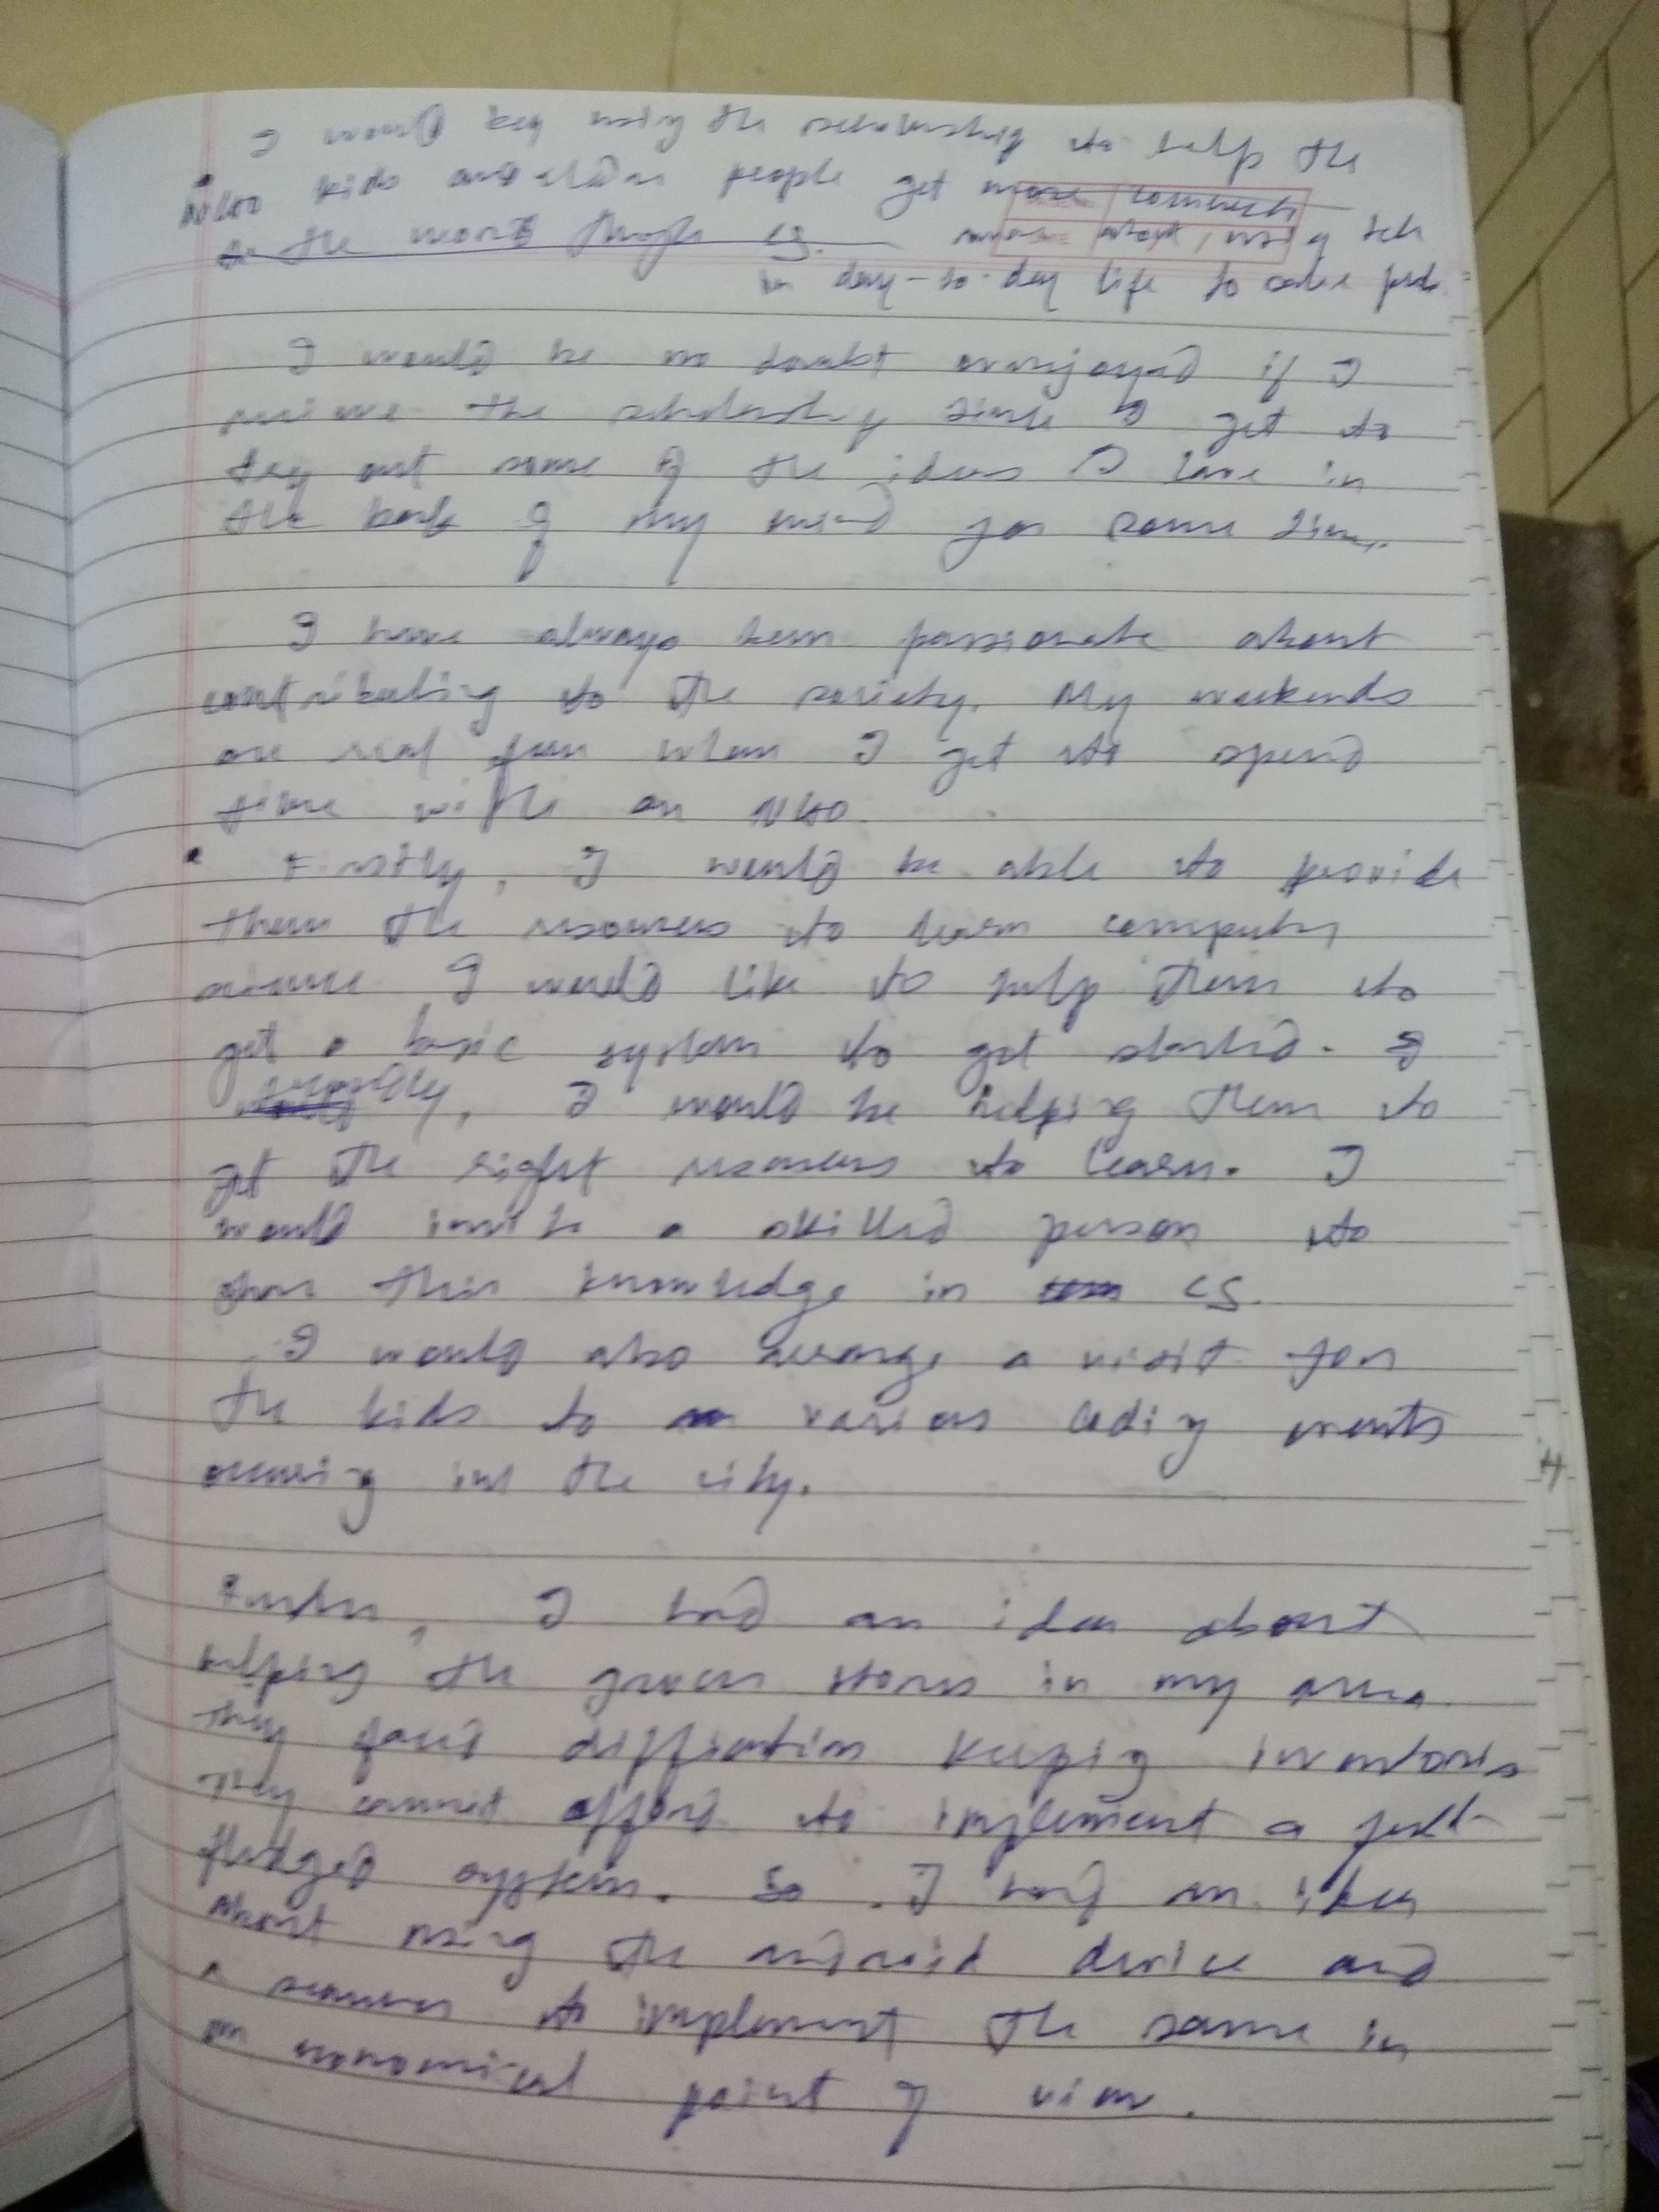 I would beg using the scholarship to help the
NGO kids and slum people get more connects
to the world through CS. using tech
in day-to-day life to solve prob
I would be no doubt overjoyed if I
receive the scholarship since I get to
try out some of the ideas I have in
the back of my mind for some time.
I have always been passionate about
contributing to the society. My weekends
are real fun when I get to spend
time with an NGO.
Firstly, I would be able to provide
them the resources to learn computer
science I would like to help them to
get a basic system to get started. I
secondly, I would be helping them to
get the right resources to learn. I
would invite a skilled person to
share this knowledge in CS.
I would also arrange a visit for
the kids to various coding events
occuring in the city.
Further, I had an idea about
helping the grocer stores in my area.
They faced keeping inventories
They cannot afford to implement a full-
fledged system. So I had an idea
about using the android device and
a scanner to implement the same in
an economical point of view.